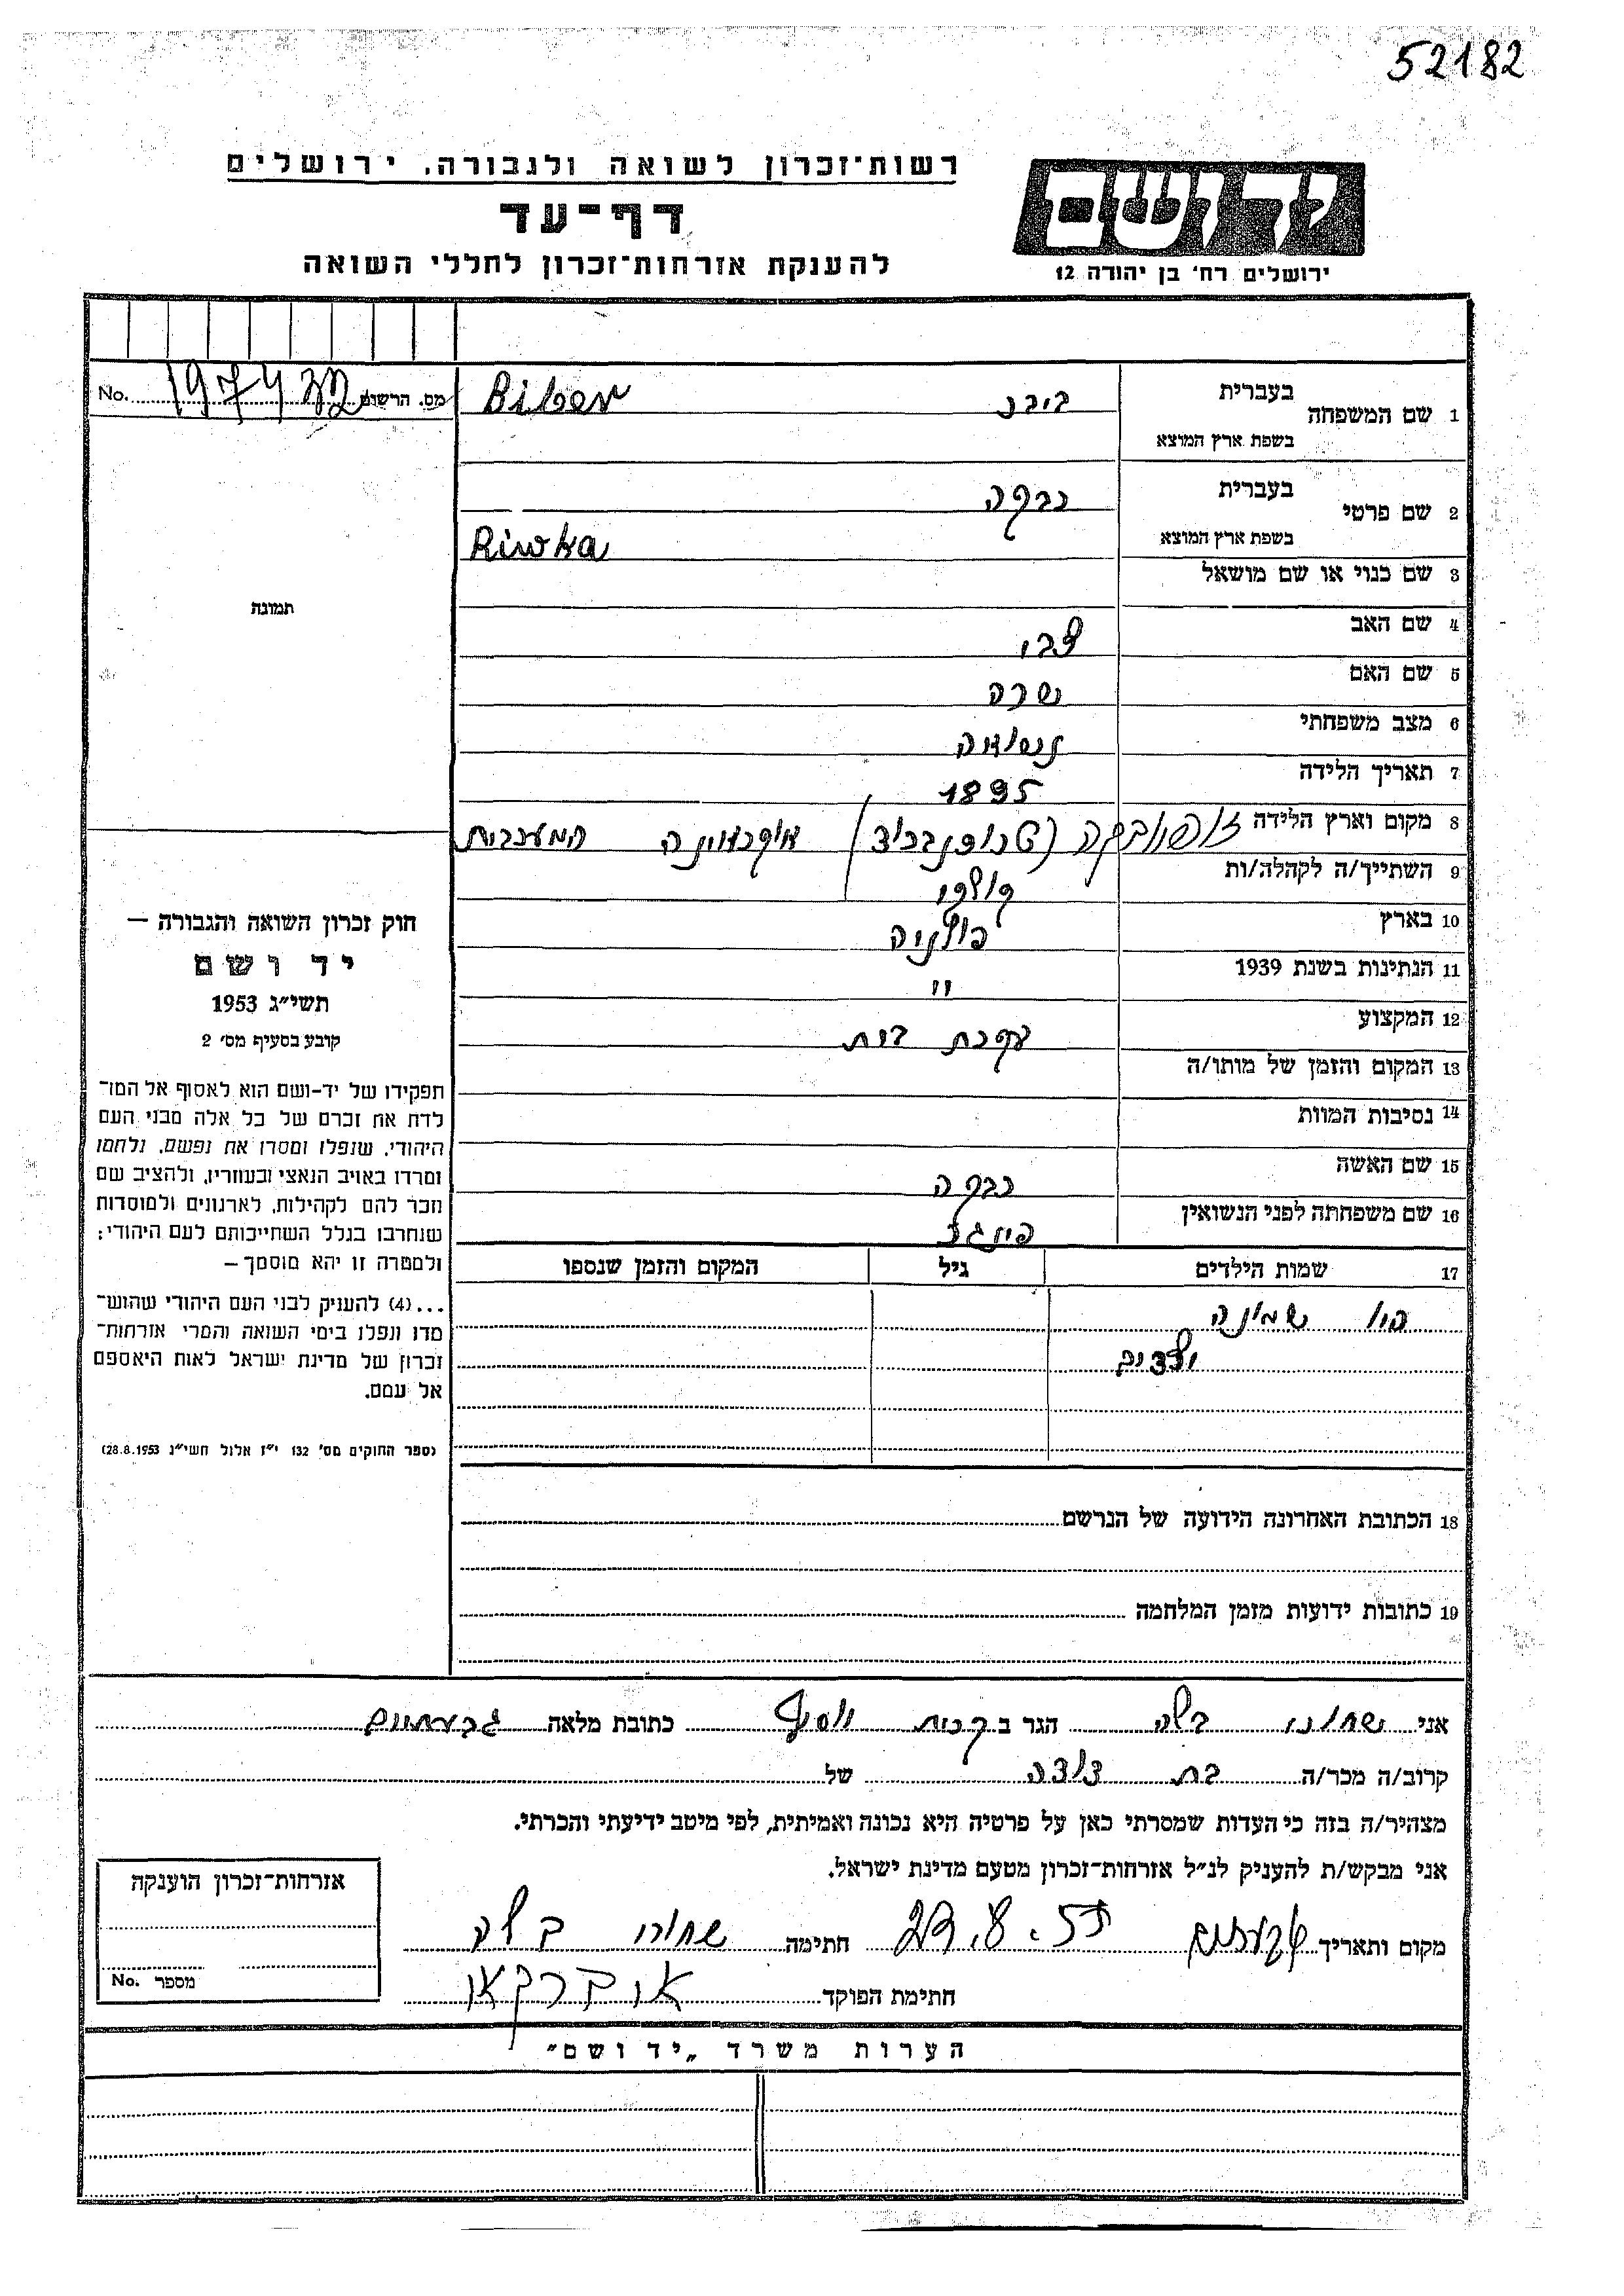 52182
יד ושם
ירושלים רח' בן יהודה 12
רשות־זכרון לשואה ולגבורה, ירושלים
דף־עד
להענקת אזרחות־זכרון לחללי השואה
מס. הרשום No.
1 שם המשפחה בעברית ביבר Biber
בשפת ארץ המוצא
2 שם פרטי בעברית רבקה
בשפת ארץ המוצא Riwka
3 שם כנוי או שם מושאל
4 שם האב צבי
5 שם האם שרה
6 מצב משפחתי נשואה
7 תאריך הלידה 1895
8 מקום וארץ הלידה אוקראוינה המערבית
9 השתייך/ה לקהלה/ות
10 בארץ פולניה
11 הנתינות בשנת 1939 "
12 המקצוע עקרת בית
13 המקום והזמן של מותו/ה
14 נסיבות המוות
15 שם האשה רבקה
16 שם משפחתה לפני הנשואין
17 שמות הילדים גיל המקום והזמן שנספו
היו שמונה
ילדים
18 הכתובת האחרונה הידועה של הנרשם
19 כתובות ידועות מזמן המלחמה
תמונה
חוק זכרון השואה והגבורה —
יד ושם
תשי״ג 1953
קובע בסעיף מס׳ 2
תפקידו של יד-ושם הוא לאסוף אל המו־
לדת את זכרם של כל אלה מבני העם
היהודי, שנפלו ומסרו את נפשם, נלחמו
ומרדו באויב הנאצי ובעוזריו, ולהציב שם
וזכר להם לקהילות, לארגונים ולמוסדות
שנחרבו בגלל השתייכותם לעם היהודי;
ולמטרה זו יהא מוסמך —
...(4) להעניק לבני העם היהודי שהוש־
מדו ונפלו בימי השואה והמרי אזרחות־
זכרון של מדינת ישראל לאות היאספם
אל עמם.
(ספר החוקים מס׳ 132 י״ז אלול תשי״ג 28.8.1953)
אני שחורי בלה הגר ב קרית יוסף כתובת מלאה גבעתיים
קרוב/ה מכר/ה בת דודה של
מצהיר/ה בזה כי העדות שמסרתי כאן על פרטיה היא נכונה ואמיתית, לפי מיטב ידיעתי והכרתי.
אני מבקש/ת להעניק לנ״ל אזרחות־זכרון מטעם מדינת ישראל.
מקום ותאריך גבעתיים חתימה שחורי בלה
חתימת הפוקד
אזרחות־זכרון הוענקה
מספר No.
הערות משרד „יד ושם״